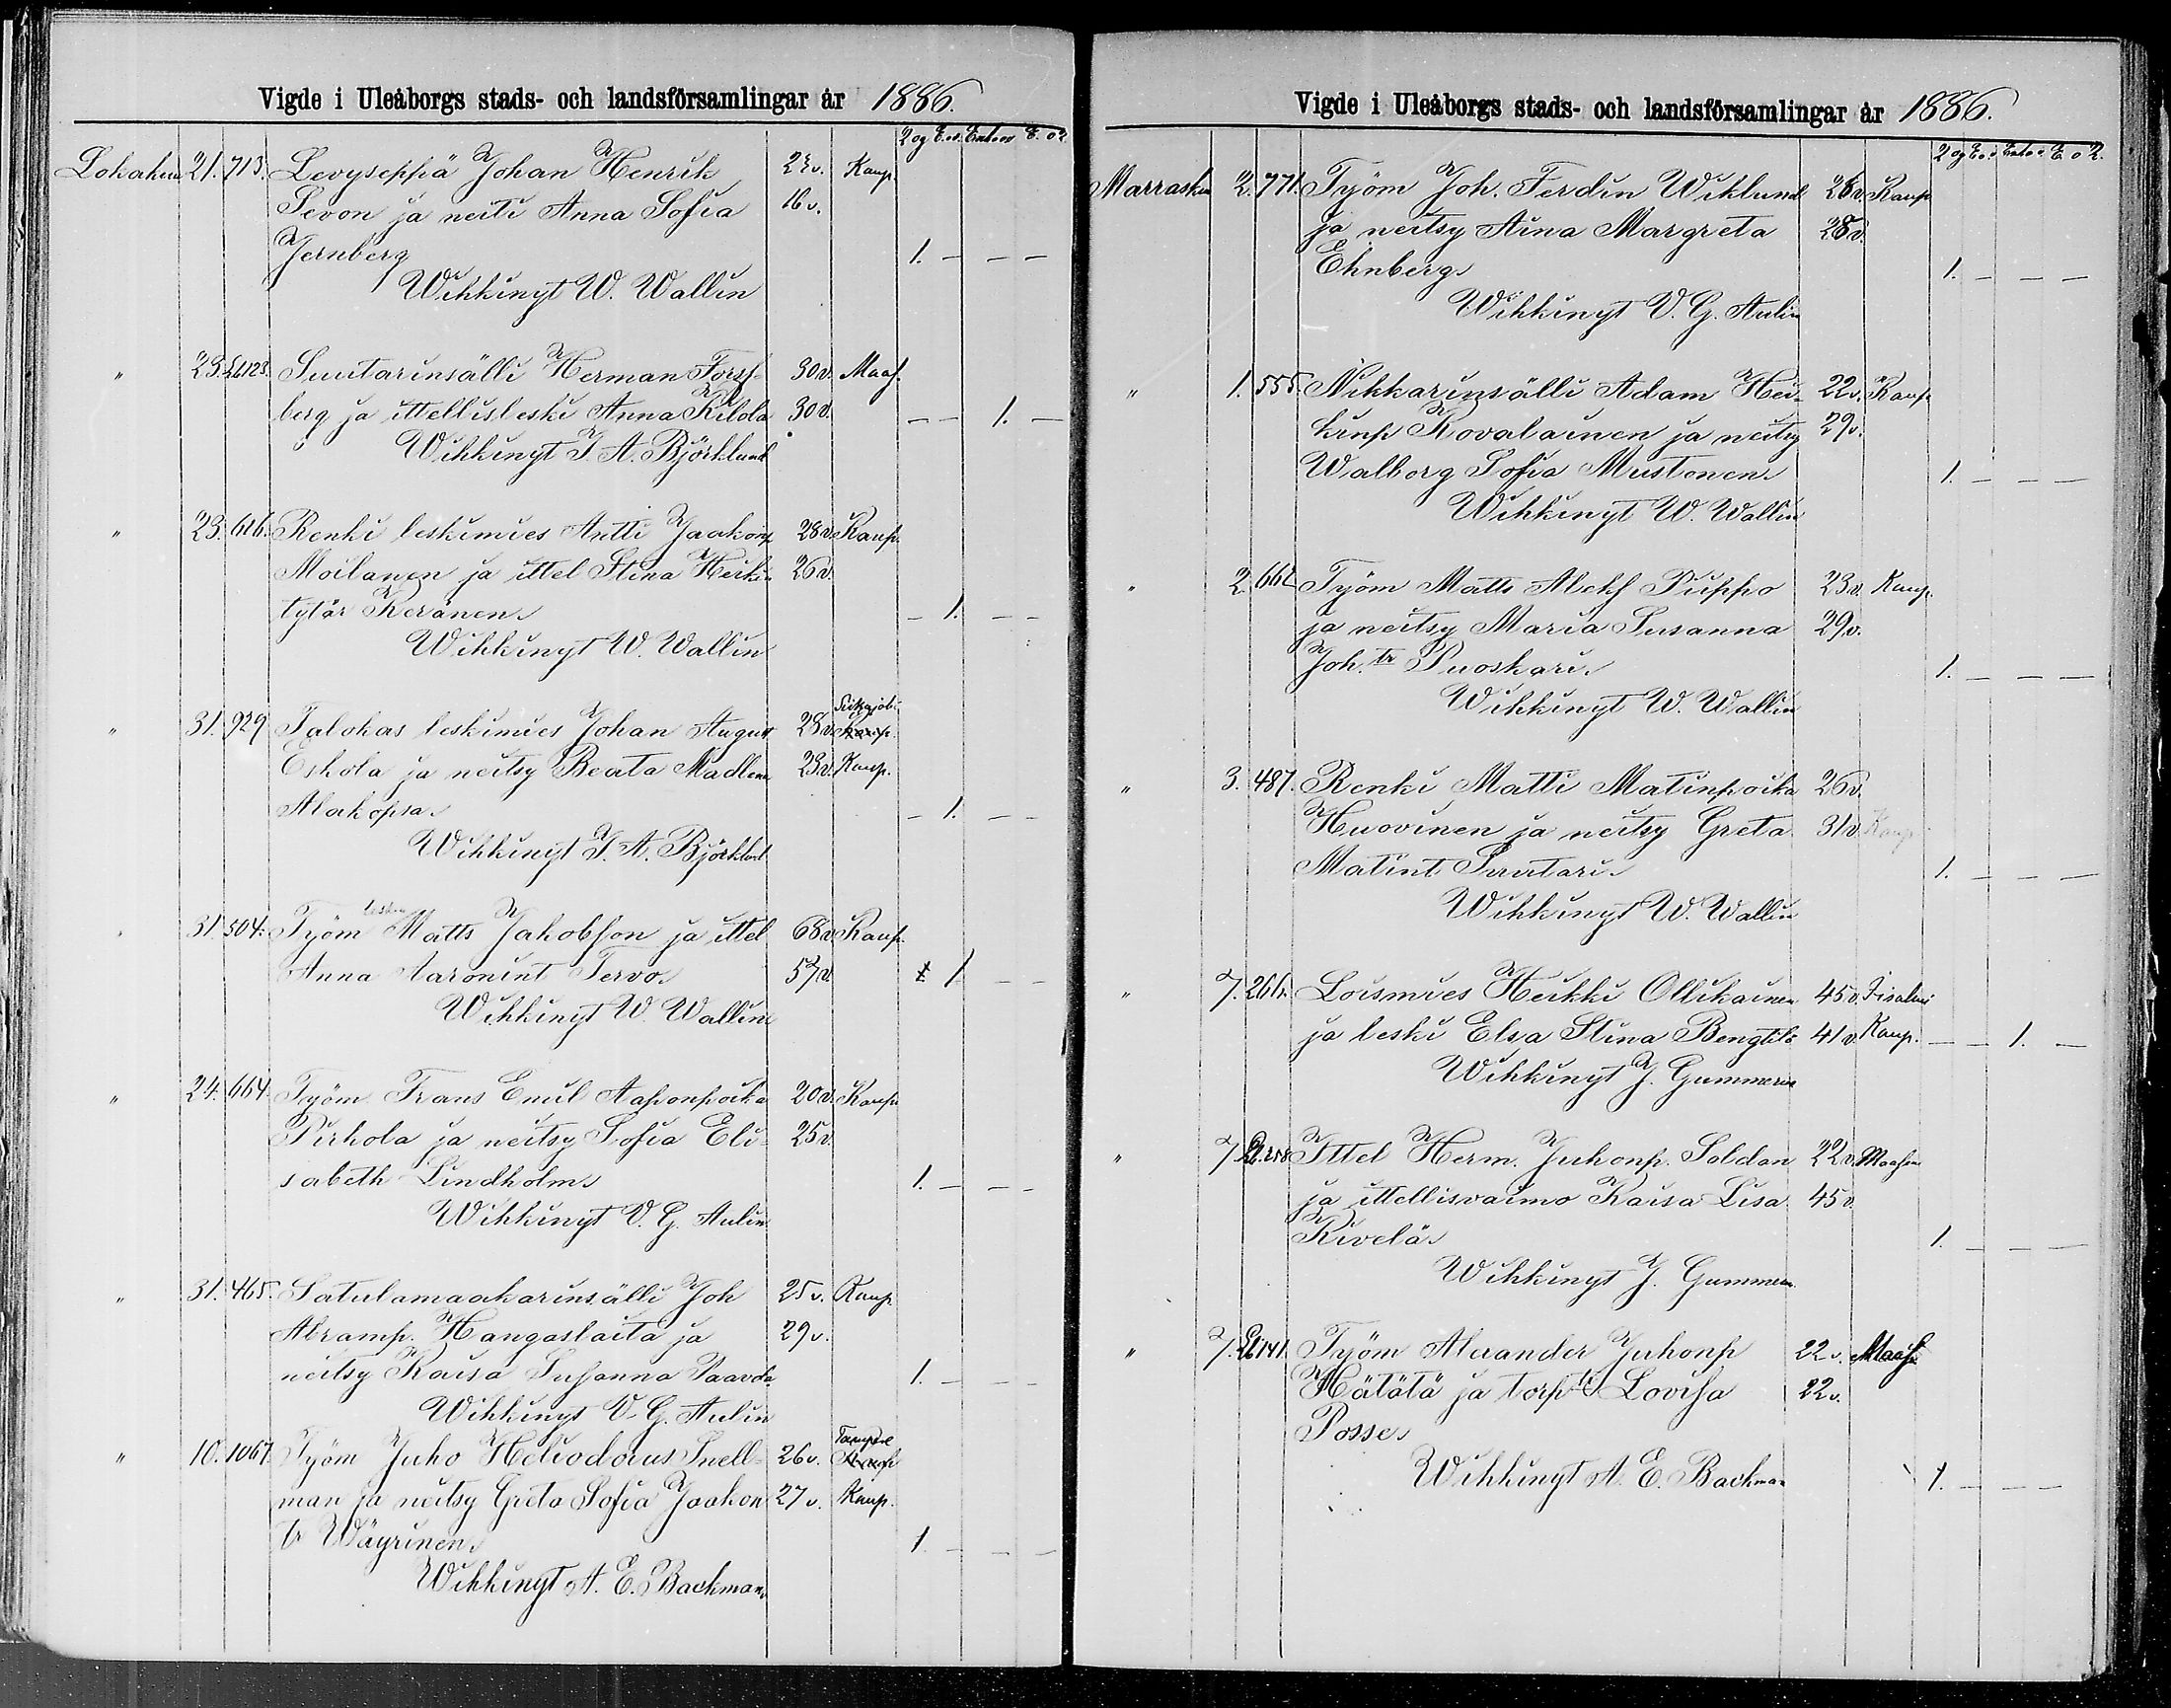 Vigde i Uleåborgs stads- och landsförsamlingar år 1886.
Lokakuu 21. 713. Levyseppä Johan Henrik 23 v. Kaup.
Sevon ja neiti Anna Sofia 16 v.
Jernberg 1. - - -
Wihkinyt W. Wallin
" 23. 26123. Suutarinsälli Herman Forss- 30 v. Maas.
berg ja ittellisleski Anna Kilola 30 v. - - 1. -
Wihkinyt J. A. Björklund
" 23. 616. Renki leskimies Antti Jaakonp 28 v. Kaup.
Moilanen ja ittel Stina Heikin 26 v.
tytär Keränen - 1. - -
Wihkinyt W. Wallin
" 31. 929 Talokas leskimies Johan August 28 v. Siikajoki
Eskola ja neitsy Beata Madlena 23 v. Kaup.
Alakopsa - 1. - -
Wihkinyt J. A. Björklund
" 31. 504. Työm leskim Matts Jakobsson ja ittel 68 v. Kaup.
Anna Aaronint Tervo 57 v. 1 - -
Wihkinyt W. Wallin
" 24. 664. Työm Frans Emil Aaponpoika 20 v. Kaup
Pirhola ja neitsy Sofia Eli- 25 v.
sabeth Lindholm 1. - - -
Wihkinyt V. G. Aulin
" 31. 465. Satulamaakarinsälli Joh 25 v. Kaup
Abramp. Hangaslaita ja 29 v.
neitsy Kaisa Susanna Paavola 1. - - -
Wihkinyt V. G. Aulin
" 10. 1067. Työm Juho Heliodorus Snell- 26 v. Tampere
man ja neitsy Greta Sofia Jaakon 27 v. Kaup.
tr Wäyrinen 1. - - -
Wihkinyt A. E. Backman
Vigde i Uleåborgs stads- och landsförsamlingar år 1886.
Marraskuu 2. 771. Työm Joh. Ferdin Wiklund 28 v. Kaup
ja neitsy Aina Margreta 28 v.
Ehnberg 1. - - -
Wihkinyt V. G. Aulin
" 1. 555. Nikkarinsälli Adam Hei- 22 v. Kaup
kinp Kovalainen ja neitsy 29 v.
Walborg Sofia Mustonen 1. - - -
Wihkinyt W. Wallin
" 2. 662 Työm Matts Aleks Puppo 23 v. Kaup.
ja neitsy Maria Susanna 29 v.
Joh. tr Puoskari 1. - - -
Wihkinyt W. Wallin
" 3. 487. Renki Matti Matinpoika 26 v.
Huovinen ja neitsy Greta 31 v. Kaup
Matint Suutari 1. - - -
Wihkinyt W. Wallin
" 7. 266. Loismies Heikki Ollikainen 45 v. Iisalmi
ja leski Elsa Stina Bengtilä 41 v. Kaup. - - 1. -
Wihkinyt J. Gummerus
" 7. 26.258 Ittel Herm. Juhonp. Soldan 22 v. Maas
ja ittellisvaimo Kaisa Lisa 45 v
Kivelä 1. - - -
Wihkinyt J. Gummerus
" 7. 26141. Työm Alexander Juhonp 22 v. Maas
Hätätä ja torp tr Lovisa 22 v.
Posse
Wihkinyt A. E. Backman 1. - - -